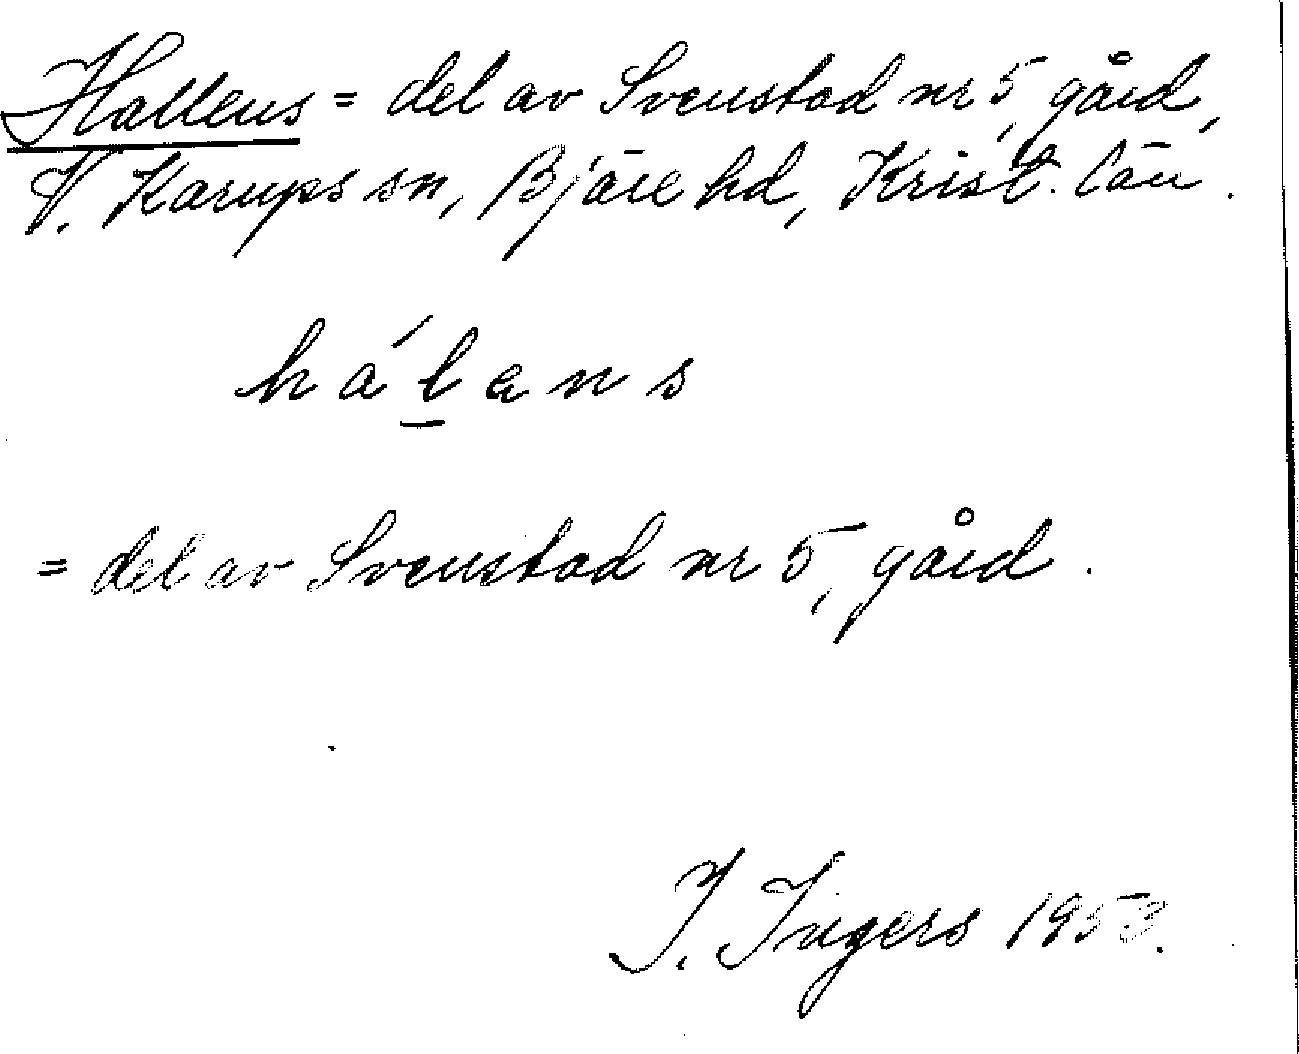 Hallens = del av Svenstad nr 5, gård,
V. Karups sn, Bjäre hd, Krist. län.
hálans
= del av Svenstad nr 5, gård.
I. Ingers 1953.